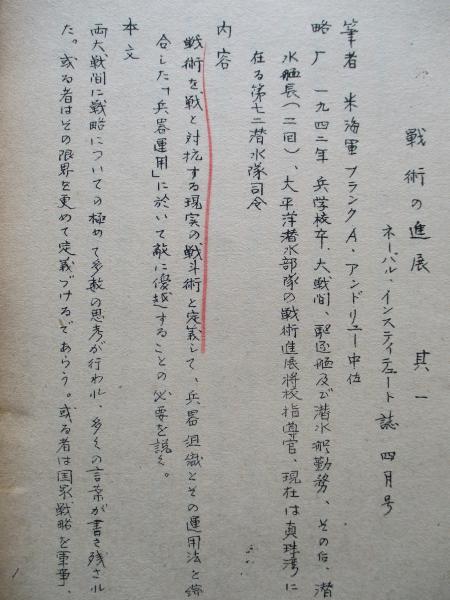 戦術の進展　其一
ネーバル、インスティテュート誌　四月号
筆者　米海軍フランクA・アンドリュー中佐
略歴　一九四二年兵学校卒、大戦間、駆逐艦及び潜水艦勤務、その后、潜
水艦長（二回）、太平洋潜水部隊の戦術進展将校指導官、現在は真珠湾に
在る第七二潜水隊司令
内容
戦術を、戦と対抗する現実の戦斗術と定義して、兵器組織とその運用法とを
合した「兵器運用」に於いて敵に優越することの必要を説く。
本文
両大戦間に戦略についての極めて多数の思考が行われ、多くの言葉が書き残され
た。或る者はその限界を更めて定義づけるであらう。或る者は国家戦略を軍事、